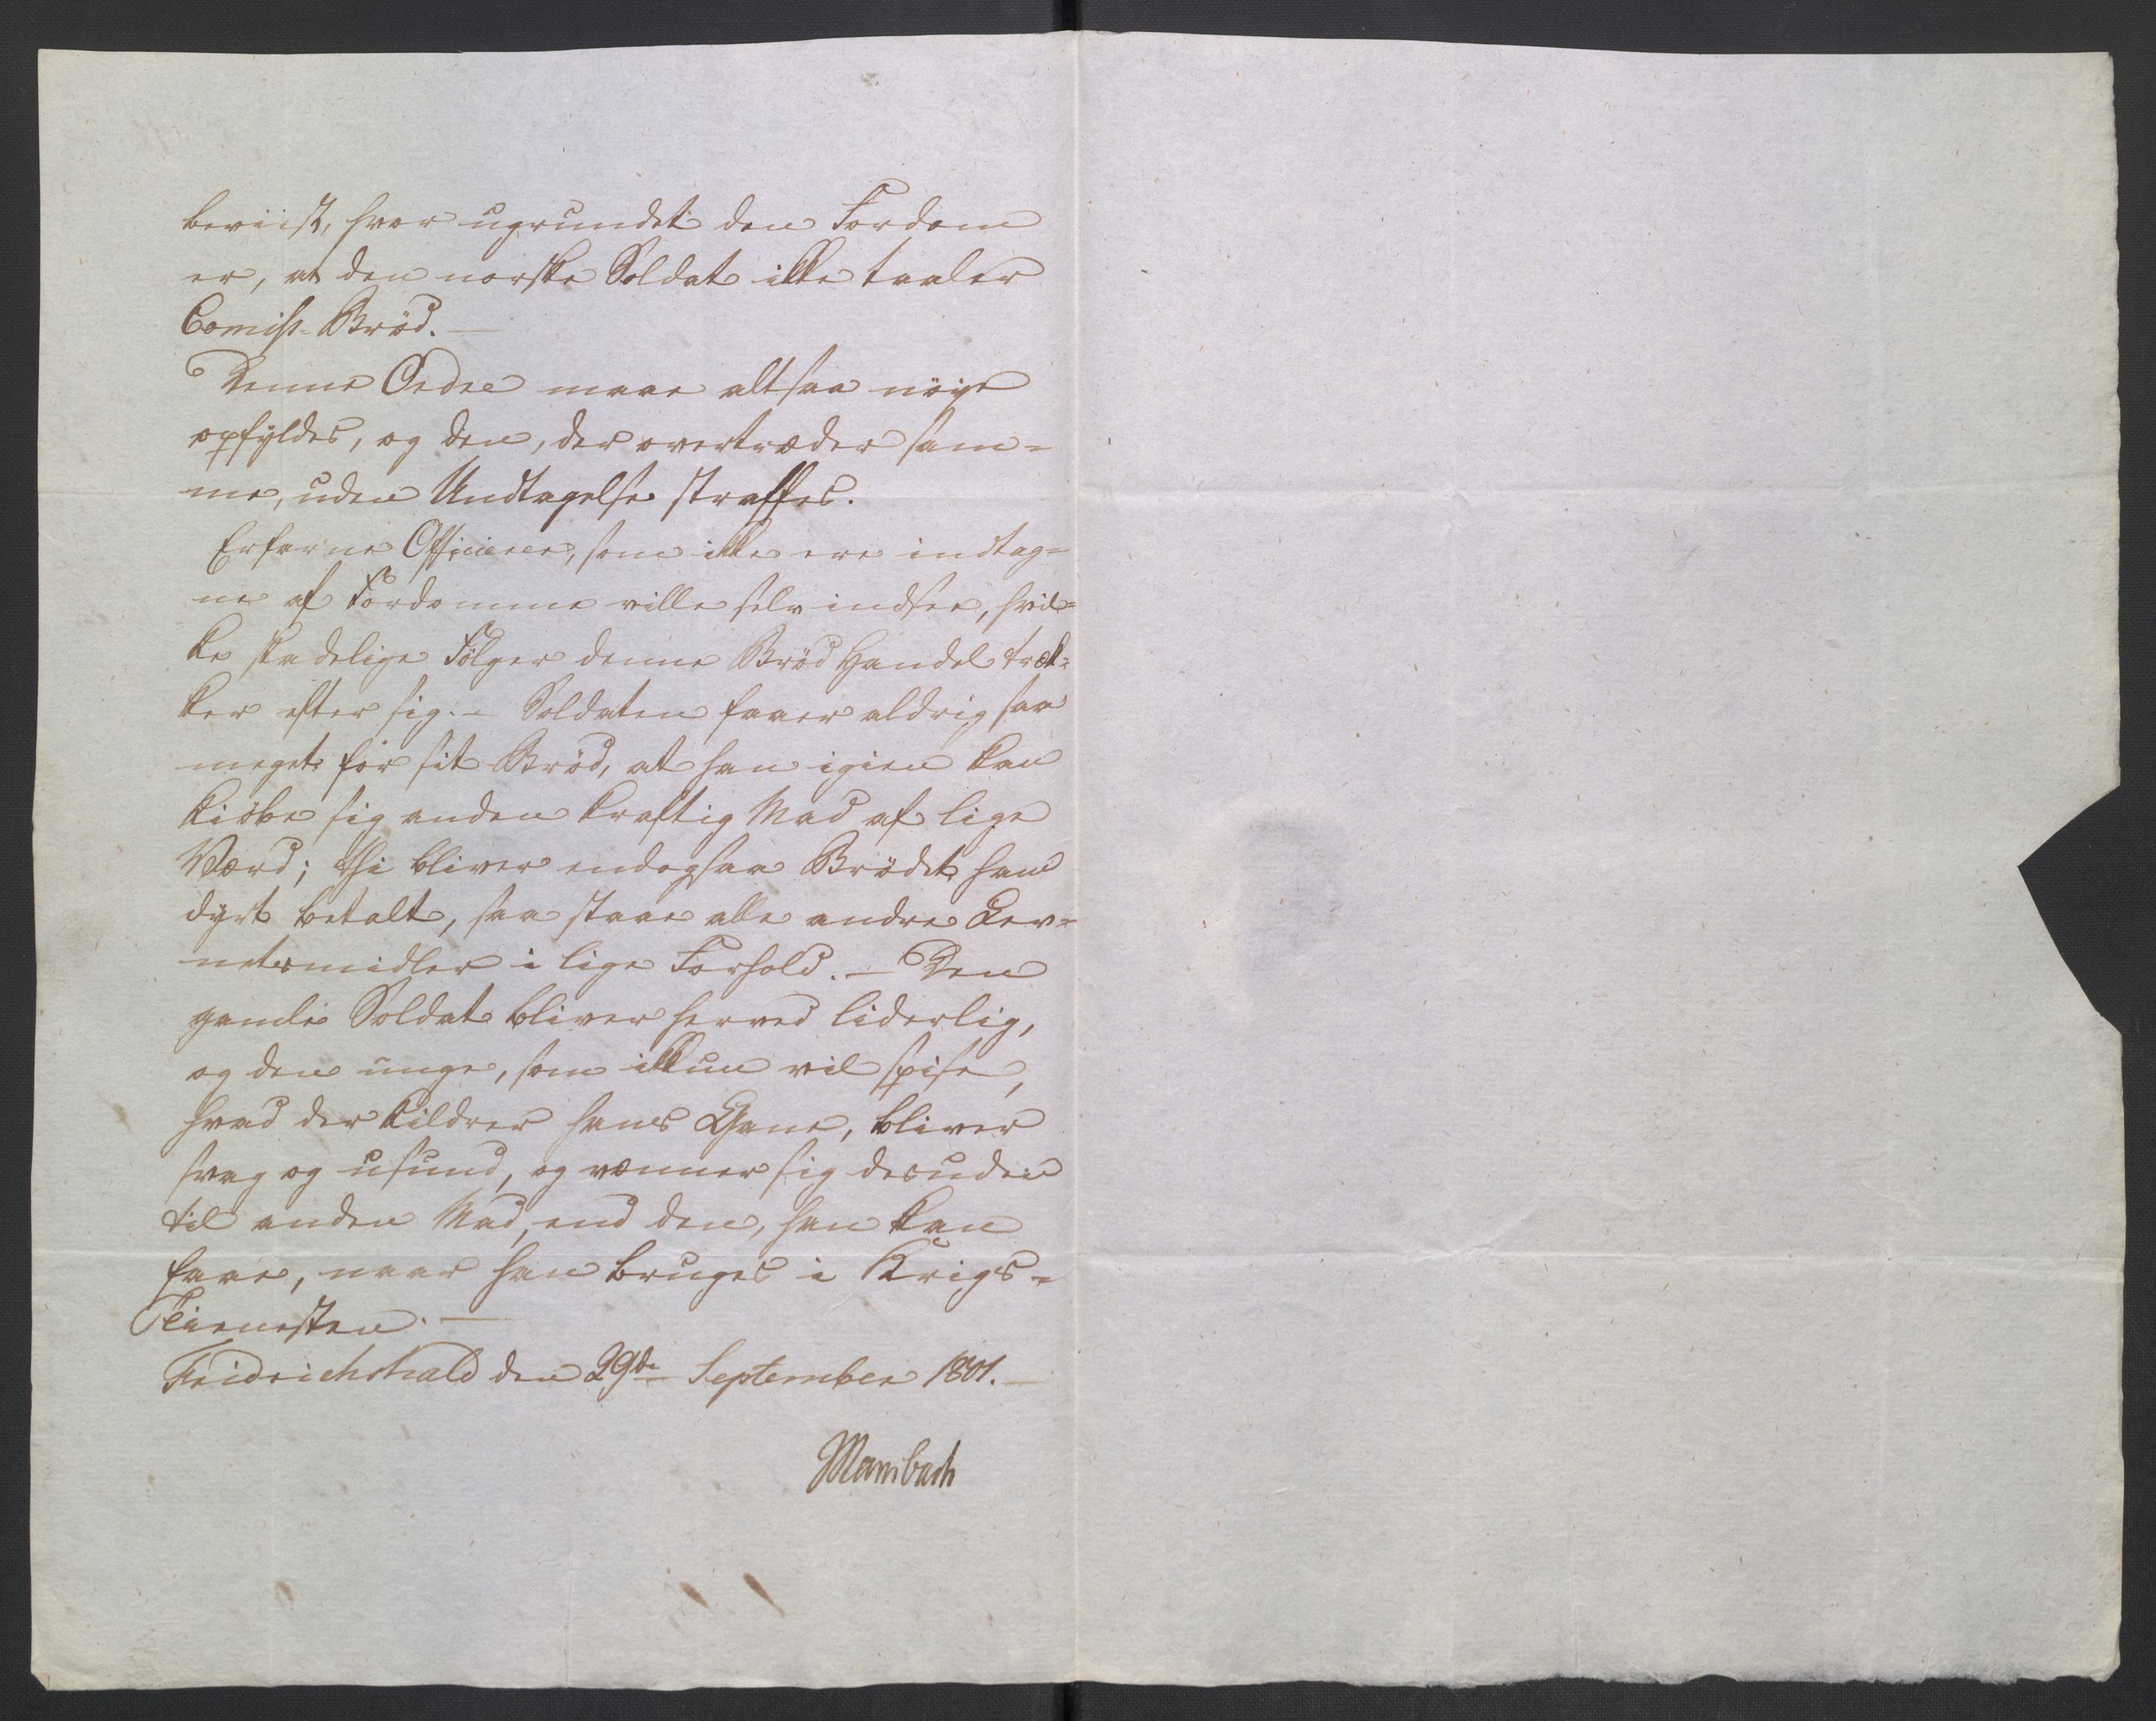 beviist, hvor ugrundet den Fordom
er, at den norske Soldat ikke taaler
Comiss-Brød. —
Denne Ordre maae altsaa nøye
opfyldes, og den, der overtræder sam=
me, uden Undtagelse straffes.
Erfarne Officierer, som ikke ere indtag=
ne af Fordomme ville selv indsee, hvil=
ke skadelige Følger denne Brød Handel træk=
ker efter sig. – Soldaten faaer aldrig saa
meget for sit Brød, at han igien kan
kiøbe sig anden kraftig Mad af lige
Værd; thi bliver endogsaa Brødet ham
dyrt betalt, saa staae alle andre Lev=
netsmidler i lige Forhold. — Den
gamle Soldat bliver herved liderlig,
og den unge, som ikkun vil spise,
hvad der kildrer hans Gane, bliver
svag og usund, og vænner sig desuden
til anden Mad, end den, han kan
faae, naar han bruges i Krigs=
Tienesten. —
Fridrichshald den 29de September 1801. —
Mansbach